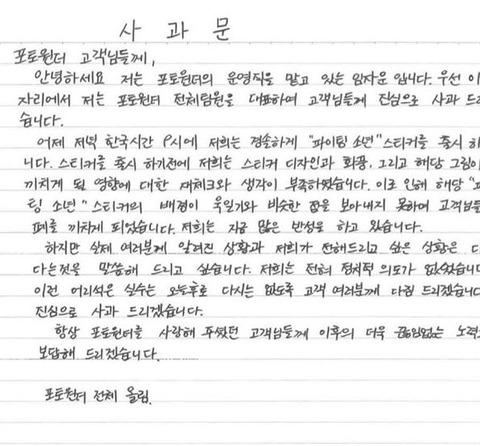 사 과 문
포토원더 고객님들께,
안녕하세요 저는 포토원더의 운영직을 맡고 있는 임자운 입니다. 우선 이
자리에서 저는 포토원더 전체팀원을 대표하여 고객님들게 진심으로 사과 드리
습니다.
어제 저녁 한국시간 9시에 저희는 경솔하게 "파이팅 소년"스티커를 출시 하
니다. 스티커를 출시 하기전에 저희는 스티커 디자인과 화광, 그리고 해당 그림이
끼치게 될 영향에 대한 재체크와 생각이 부족하였습니다. 이로 인해 해당 "파
팅 소년" 스티커의 배경이 욱일기와 비슷한 점을 보아내지 못하여 고객님들
폐를 끼치게 되었습니다. 저희는 지금 많은 반성을 하고 있습니다.
하지만 실제 여러분께 알려진 상황과 저희가 전해드리고 싶은 상황은 다
다는것을 말씀해 드리고 싶습니다. 저희는 전혀 정치적 의도가 없었습니다
이런 어리석은 실수는 오늘후로 다시는 없도록 고객 여러분께 다짐 드리겠습니
진심으로 사과 드리겠습니다.
항상 포토원더를 사랑해 주셨던 고객님들게 이후의 더욱 끊임없는 노력으
보답해 드리겠습니다.
포토원더 전체 올림.